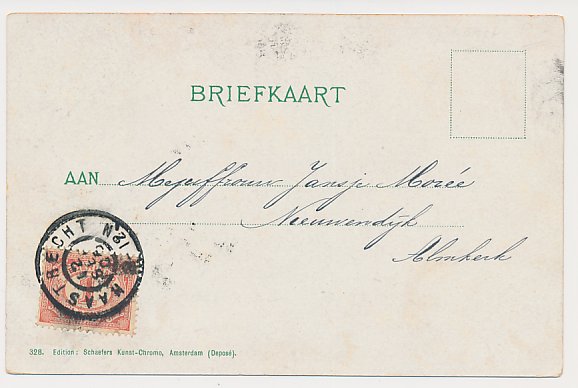 BRIEFKAART
AAN Mejuffrouw Jansje Morée
Nieuwendijk
Almkerk
MAASTRECHT
12 N
328. Edition: Schaefers Kunst-Chromo, Amsterdam (Deposé).